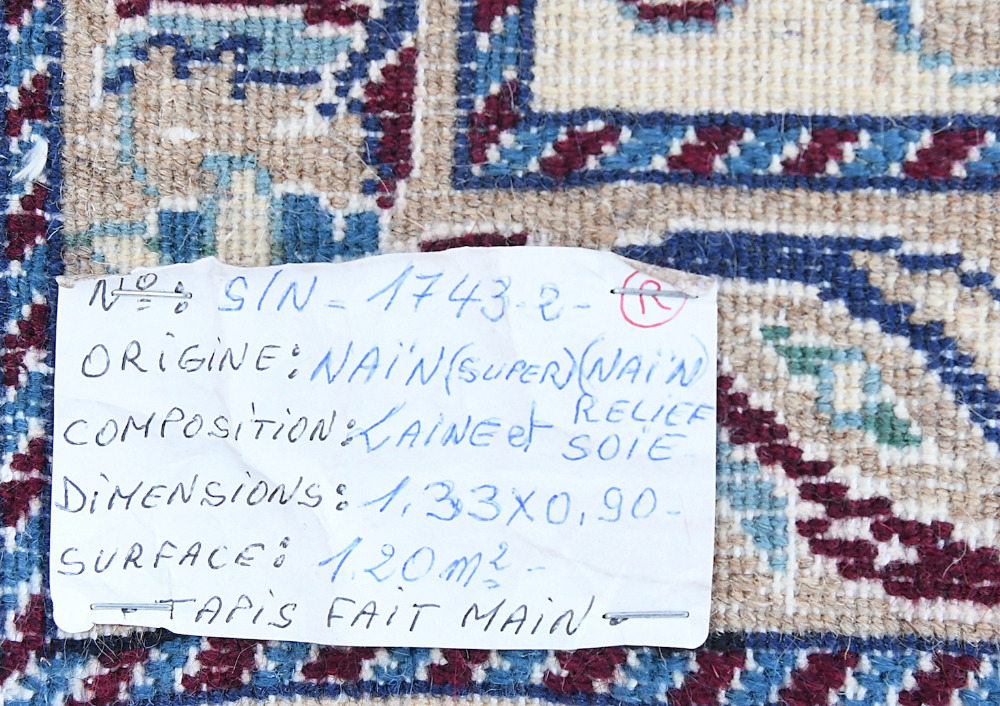 Nº: S/N - 1743-2- R
ORIGINE: NAÏN (SUPER) (NAÏN)
COMPOSITION: LAINE et RELIEF SOIE-
DIMENSIONS: 1,33X0,90-
SURFACE: 1.20m² -
TAPIS FAIT MAIN